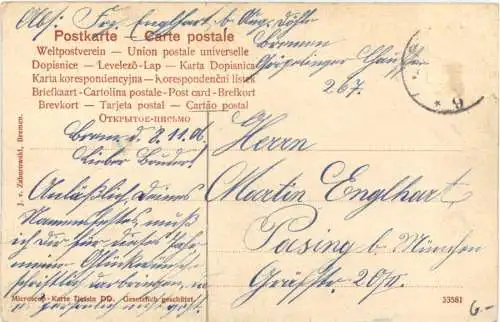 Abs: Frz. Englhart b. Aug.
Bremen
Postkarte — Carte postale
Weltpostverein — Union postale universelle
Dopisnice — Levelező-Lap — Karta Dopisnica
Karta korespondencyjna — Korespondenční lístek
Briefkaart - Cartolina postale - Post card - Brefkort
Brevkort — Tarjeta postal — Cartão postal
ОТКРЫТОЕ-ПИСЬМО
267.
9
J. v. Zaborowski, Bremen.
Bremen, d. 8.11.06.
Lieber Bruder!
Anläßlich deines
Namensfestes muß
ich dir für dieses Jahr
meine Glückwünsche
schriftlich darbringen, da
es persönlich nicht geht.
Herrn
Martin Englhart,
Pasing b. München
Gräfstr. 20/II.
Microscop-Karte Dessin DD. Gesetzlich geschützt.
33581
6.-